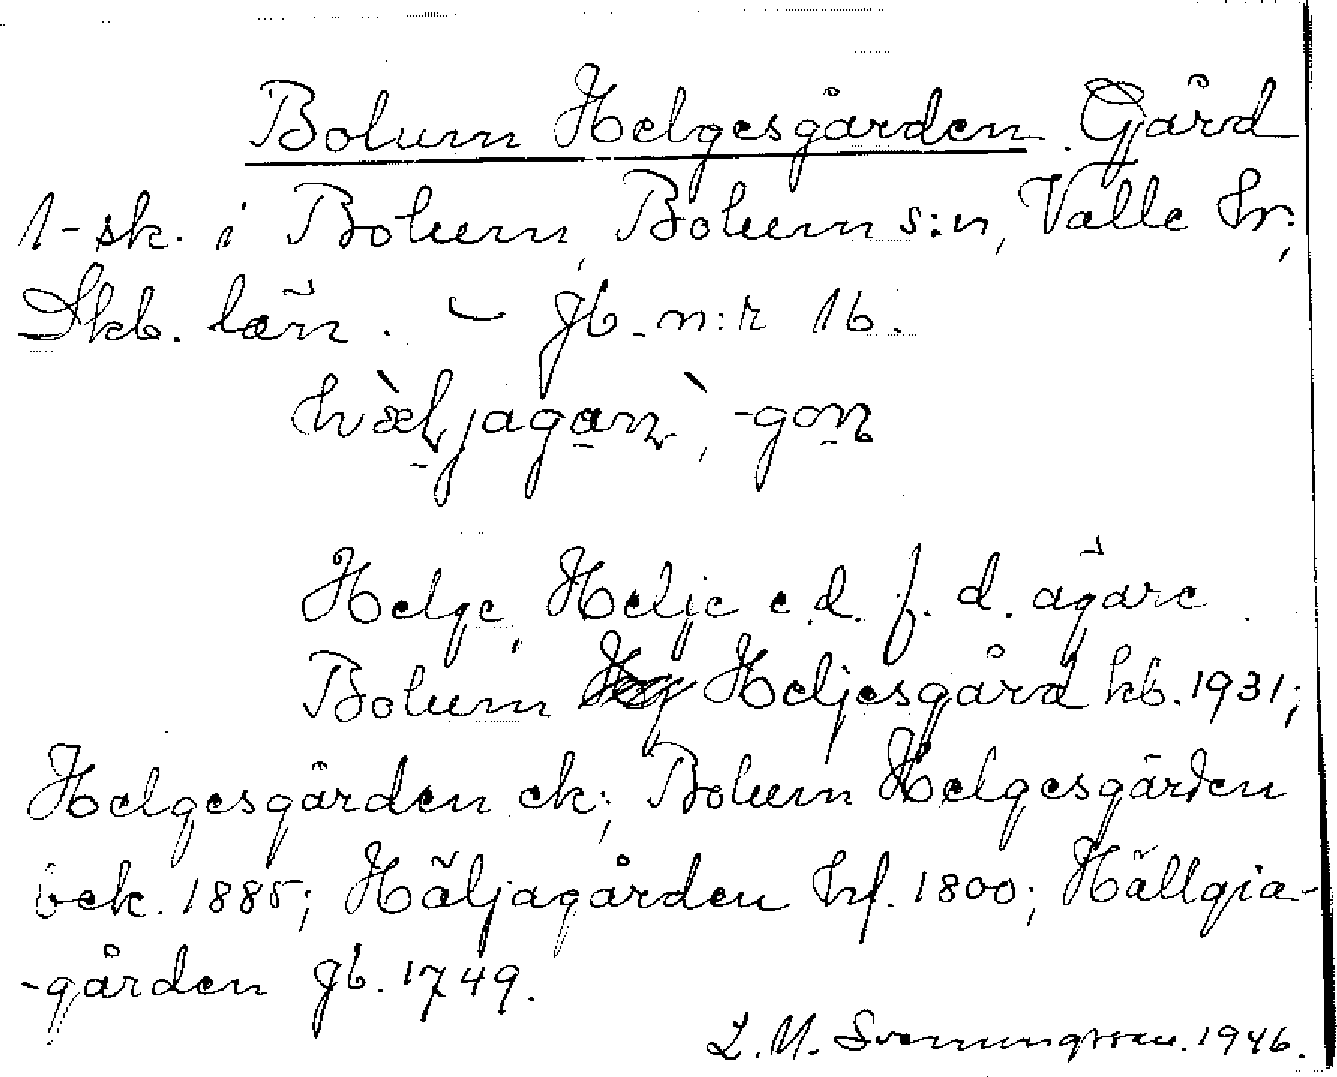 Bolum Helgesgården. Gård
1-sk. i Bolum, Bolum s:n, Valle hr;
Skb. län. — jb. n:r 16.
hvæljagan, -gon
Helge, Helje e.d. f. d. ägare
Bolum Heljesgård kb. 1931;
Helgesgården ek; Bolum Helgesgården
öek. 1885; Häljagården hf. 1800; Hällgia-
-gården jb. 1749.
L. M. Svenungsson. 1946.